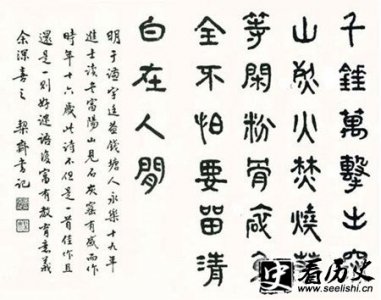 千錘萬擊出深
山烈火焚燒若
等閑粉骨碎身
全不怕要留清
白在人間
明于謙字廷益錢塘人永樂十九年
進士讀書富陽山見石灰窑有感而作
時年十六歲此詩不但是一首佳作且
還是一則好謎語復富有教育意義
余深喜之 契齋書記
看历史
www.seelishi.cn